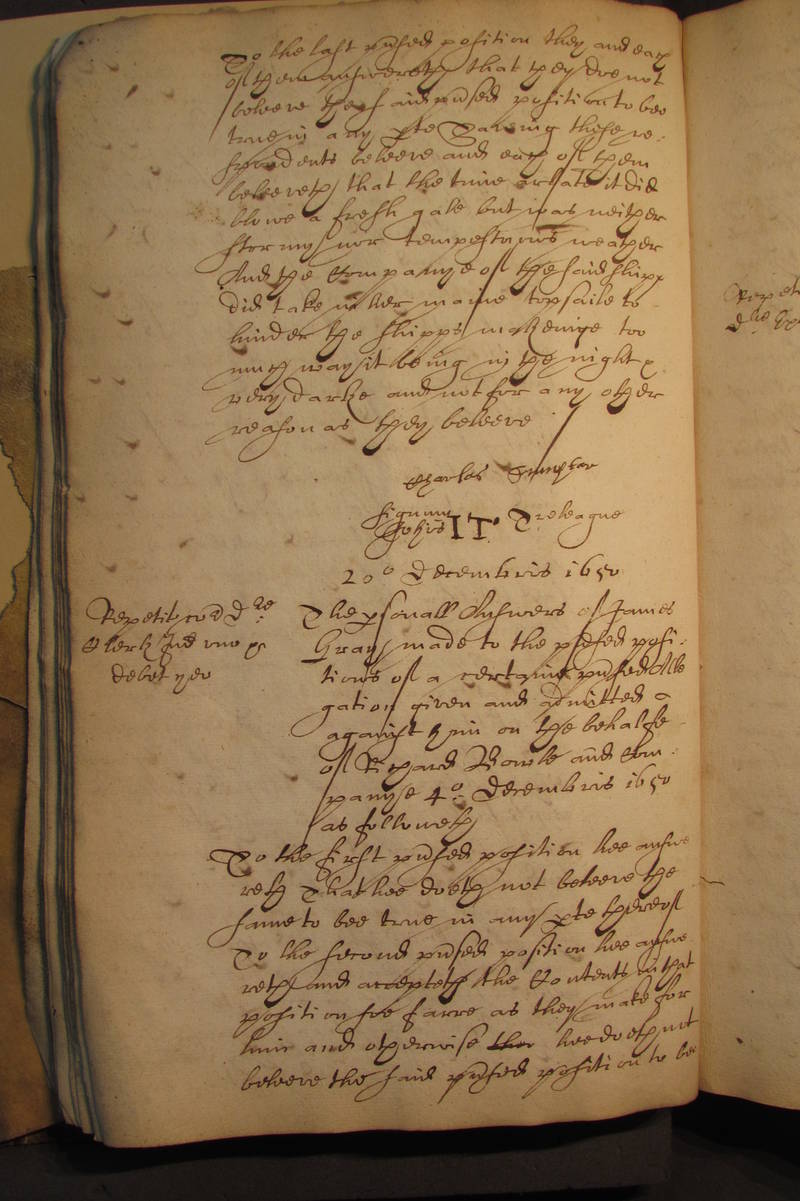 To the last p̱nsed position they and each
of them answereth that they doe not
beleeve the said p̱nsed position to bee
true in any p̱te Saving these re-
spondents beleeve and each of them
beleeveth that the time arlate it did
blowe a fresh gale but was neither
stormy nor tempestuous weather
And the Companye of the said shipp
did take in her maine topsaile to
hinder the shipps makeinge too
much way it being in the night &
very darke and not for any other
reason as they beleeve
Charles
signum
Johis IT Treleague
20o Decembris 1650
Repetit cora d re
Clerk Jud
debet
The p̱sonall Answers of James
Gray made to the p̱nsed posi-
tions of a certaine p̱nsed Alle
gation given and admitted
against him on the behalfe
of Richard Bowle and Com-
panye 4o Decembris 1650
as followeth
To the first p̱nsed position hee answe
reth That hee doeth not beleeve the
same to bee true in any p̱te thereof
To the second p̱nsed position hee answe
reth and accepteth the Contents in that
position soe farre as they make for
him and otherwise hee doeth not
beleeve the said p̱nsed position to bee
Repet